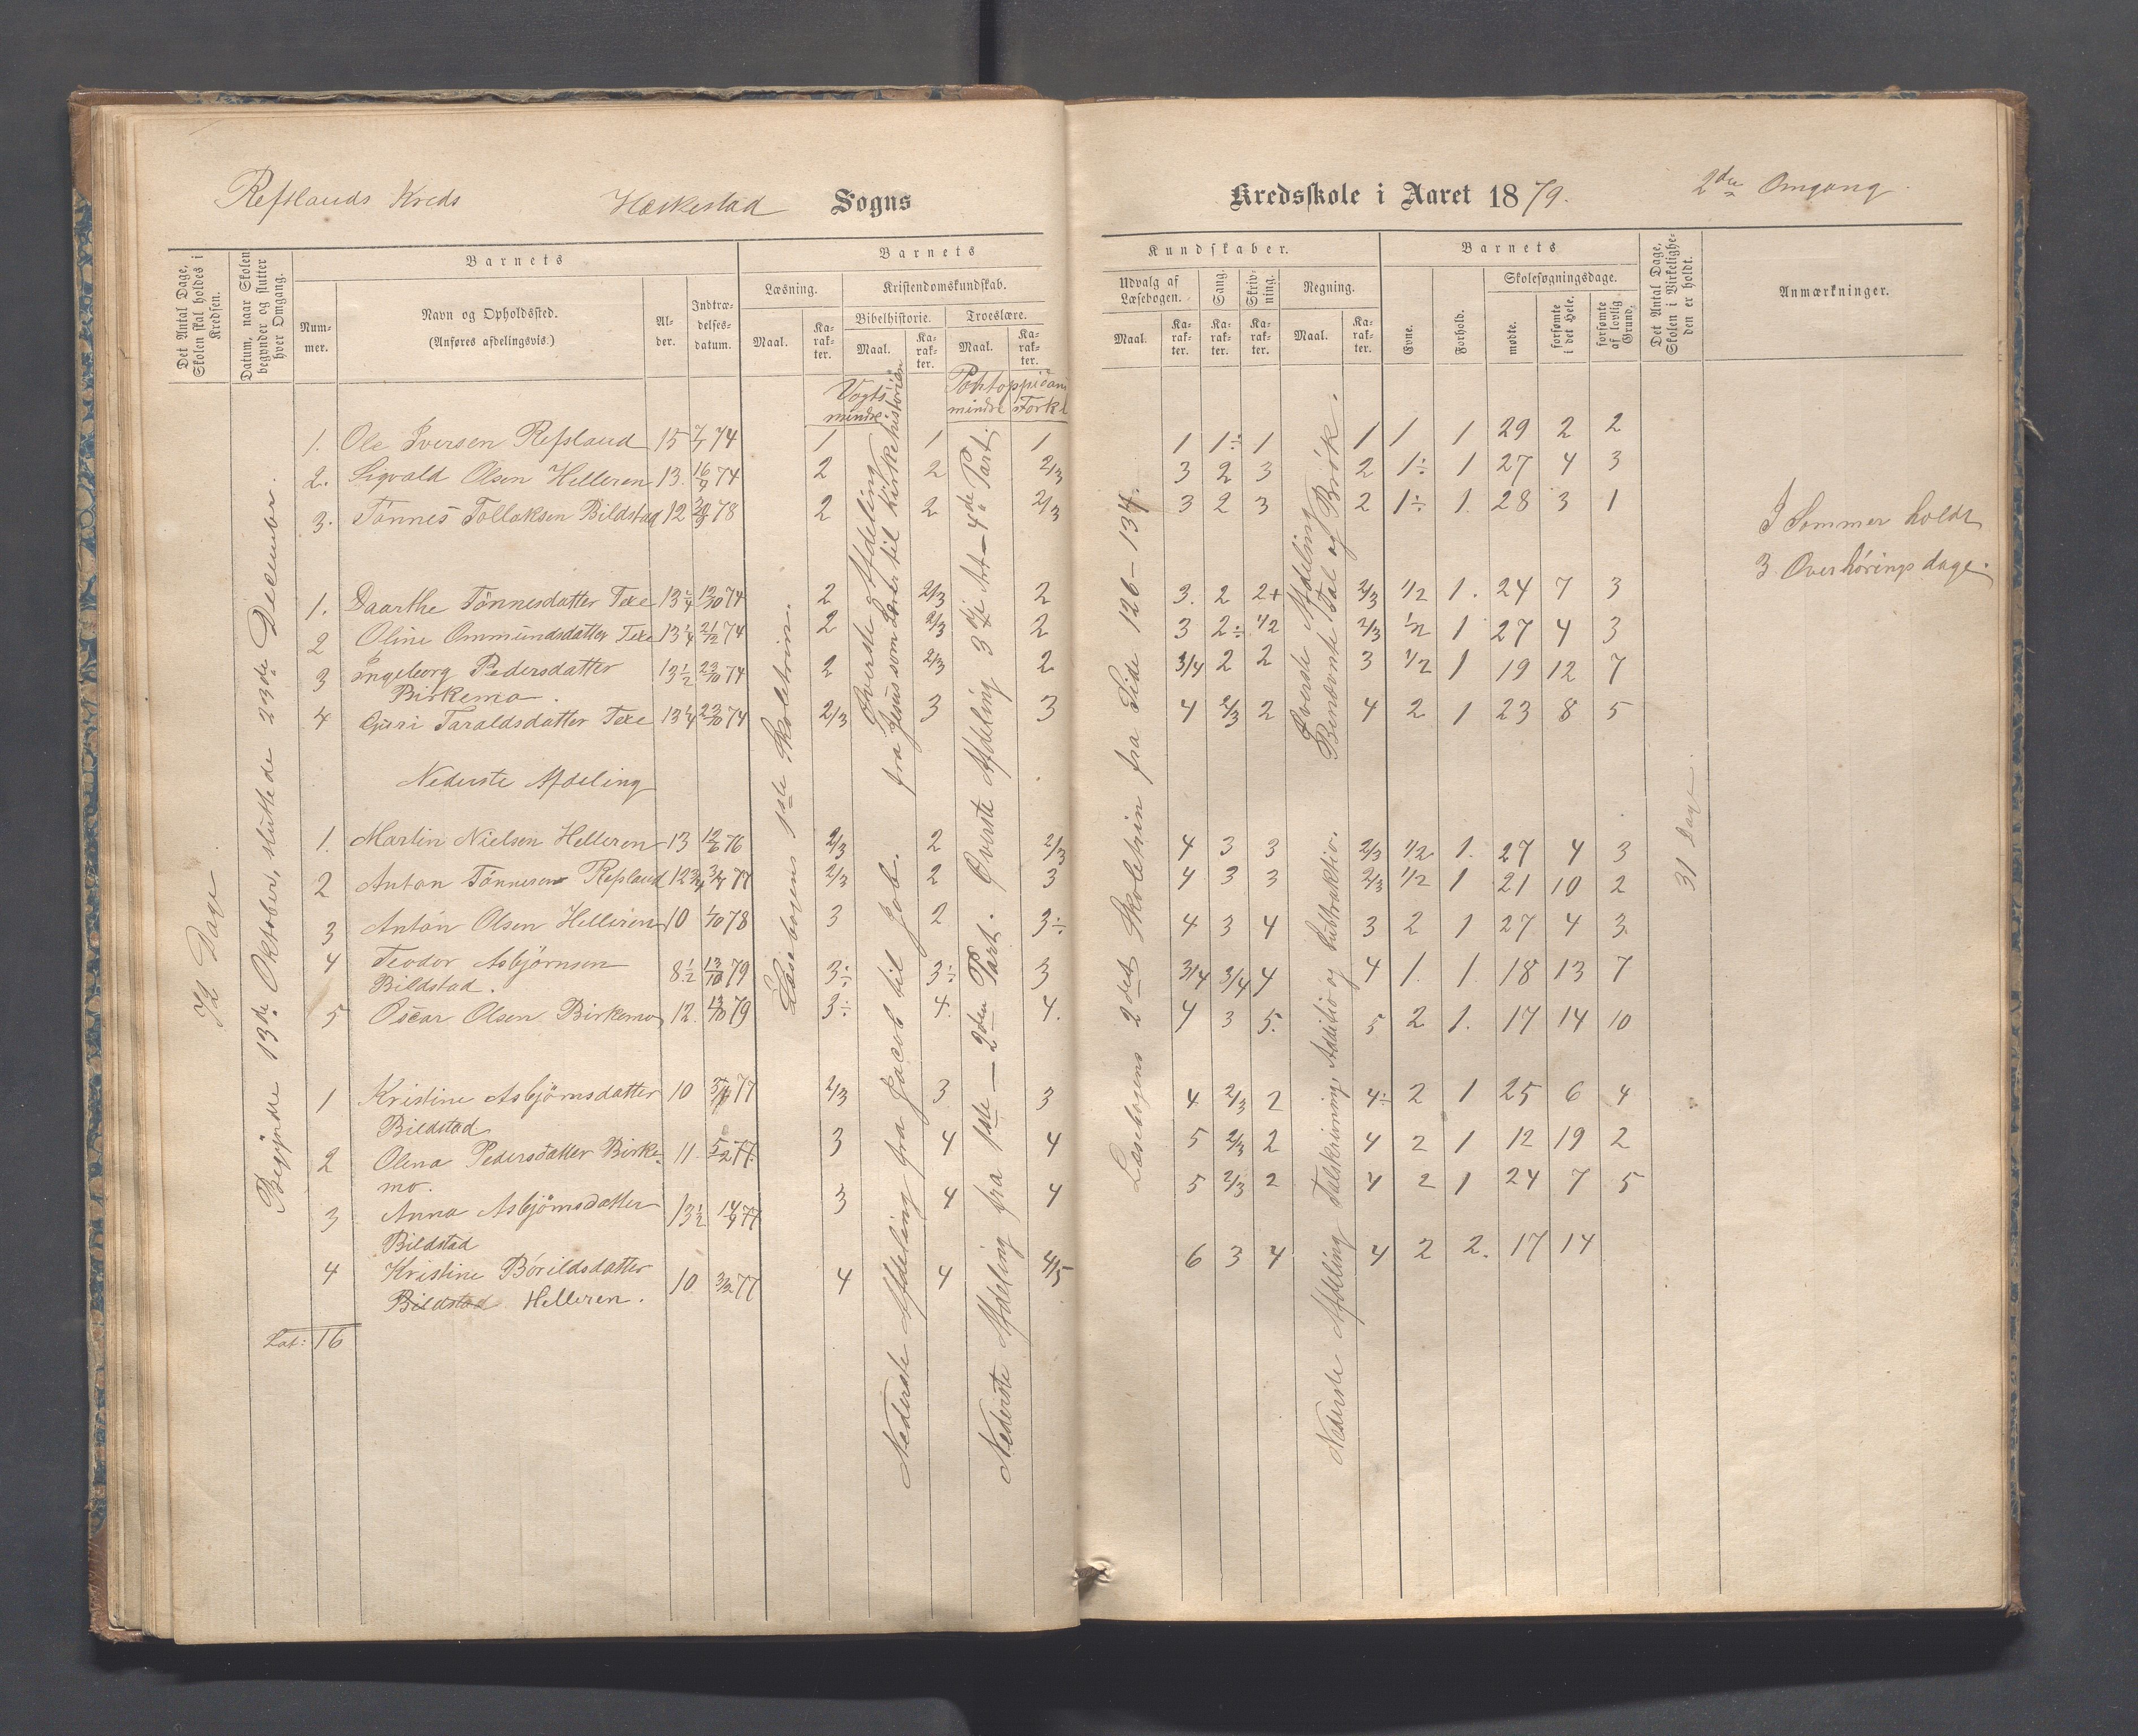 Refslands Kreds Heskestad Sogns Kredsskole i Aaret 1879. 2den Omgang.
Det Antal Dage, Skolen skal holdes i Kredsen.
Datum, naar Skolen begynder og slutter hver Omgang.
Barnets
Nummer.
Navn og Opholdssted.
(Anføres afdelingsvis.)
Alder.
Indtrædelsesdatum.
Barnets
Læsning.
Maal.
Karakter.
Kristendomskundskab.
Bibelhistorie.
Maal.
Karakter.
Troeslære.
Maal.
Karakter.
Kundskaber.
Udvalg af Læsebogen.
Maal.
Karakter.
Sang.
Karakter.
Skrivning.
Karakter.
Regning.
Maal.
Karakter.
Barnets
Evne.
Forhold.
Skolesøgningsdage.
mødte.
forsømte i det Hele.
forsømte af lovlig Grund.
Det Antal Dage, Skolen i Virkeligheden er holdt.
Anmærkninger.
Vogts mindre
Pontoppidans mindre Forkl
72 Dage
Begyndte 13de Oktober, sluttede 23de December.
Læsebogens 1ste Skoletrin.
Øverste Afdeling
fra Jesus som Lærer til Kirkehistorien
Nederste Afdeling fra Jacob til Job.
Øverste Afdeling 3die Art.–4de Part.
Nederste Afdeling fra 1ste – 2den Part.
Læsebogens 2det Skoletrin fra Side 126–134.
Øverste Afdeling
Benævnte Tal og Brök.
Nederste Afdeling Talskrivning, Additio og Subtraktio.
31 Dage.
1. Ole Iversen Refsland 15 7/7 74 1 1 1 1 1÷ 1 1 1 1 29 2 2
2. Sigvald Olsen Helleren 13. 16/9 74 2 2 2/3 3 2 3 2 1÷ 1 27 4 3
3. Tönnes Tollaksen Bildstad 12 78 2 2 2/3 3 2 3 2 1÷ 1. 28 3 1
I Sommer holdt
3 Overhörings dage.
1. Daarthe Tönnesdatter Texe 13 1/4 12/10 74 2 2/3 2 3. 2 2+ 2/3 1/2 1. 24 7 3
2 Oline Ommundsdatter Texe 13 1/4 21/12 74 2 2/3 2 3 2÷ 1/2 2/3 1/2 1 27 4 3
3 Ingeborg Pedersdatter 13 1/2 23/10 74 2 2/3 2 3/4 2 2 3 1/2 1 19 12 7
Birkemo.
4 Guri Taraldsdatter Texe 13 1/4 23/10 74 2/3 3 3 4 2/3 2 4 2 1 23 8 5
Nederste Afdeling
1. Martin Nielsen Helleren 13 12/6 76 2/3 2 2/3 4 3 3 2/3 1/2 1. 27 4 3
2 Anton Tönnesen Refsland 12 3/4 3/7 77 2/3 2 3 4 3 3 2/3 1/2 1 21 10 2
3 Anton Olsen Helleren 10 1/10 78 3 2 3÷ 4 3 4 3 2 1 27 4 3.
4 Teodor Asbjörnsen 8 1/2 13/10 79 3÷ 3÷ 3 3/4 3/4 4 4 1. 1. 18 13 7
Bildstad.
5 Oscar Olsen Birkemo 12. 13/10 79 3÷ 4. 4. 4 3 5. 5 2 1. 17 14 10
1 Kristine Asbjörnsdatter 10 77 2/3 3 3 4 2/3 2 4÷ 2 1 25 6 4
Bildstad
2 Olena Pedersdatter Birke- 11 5/2 77. 3 4 4 5 2/3 2 4 2 1 12 19 2
mo.
3 Anna Asbjörnsdatter 13 1/2 14/9 77 3 4 4 5 2/3 2 4 2 1 24 7 5
Bildstad
4 Kristine Börildsdatter 10 3/2 77 4 4 4/5 6 3 4 4 2 2. 17 14
Bildstad Helleren.
Lat: 16